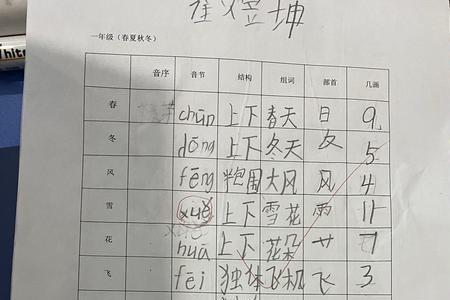 崔煜坤
一年级（春夏秋冬）
音序 音节 结构 组词 部首 几画
春 chūn 上下 春天 日 9
冬 dōng 上下 冬天 夂 5
风 fēng 半包围 大风 风 4
雪 xuě 上下 雪花 雨 11
花 huā 上下 花朵 艹 7
飞 fēi 独体 飞机 飞 3